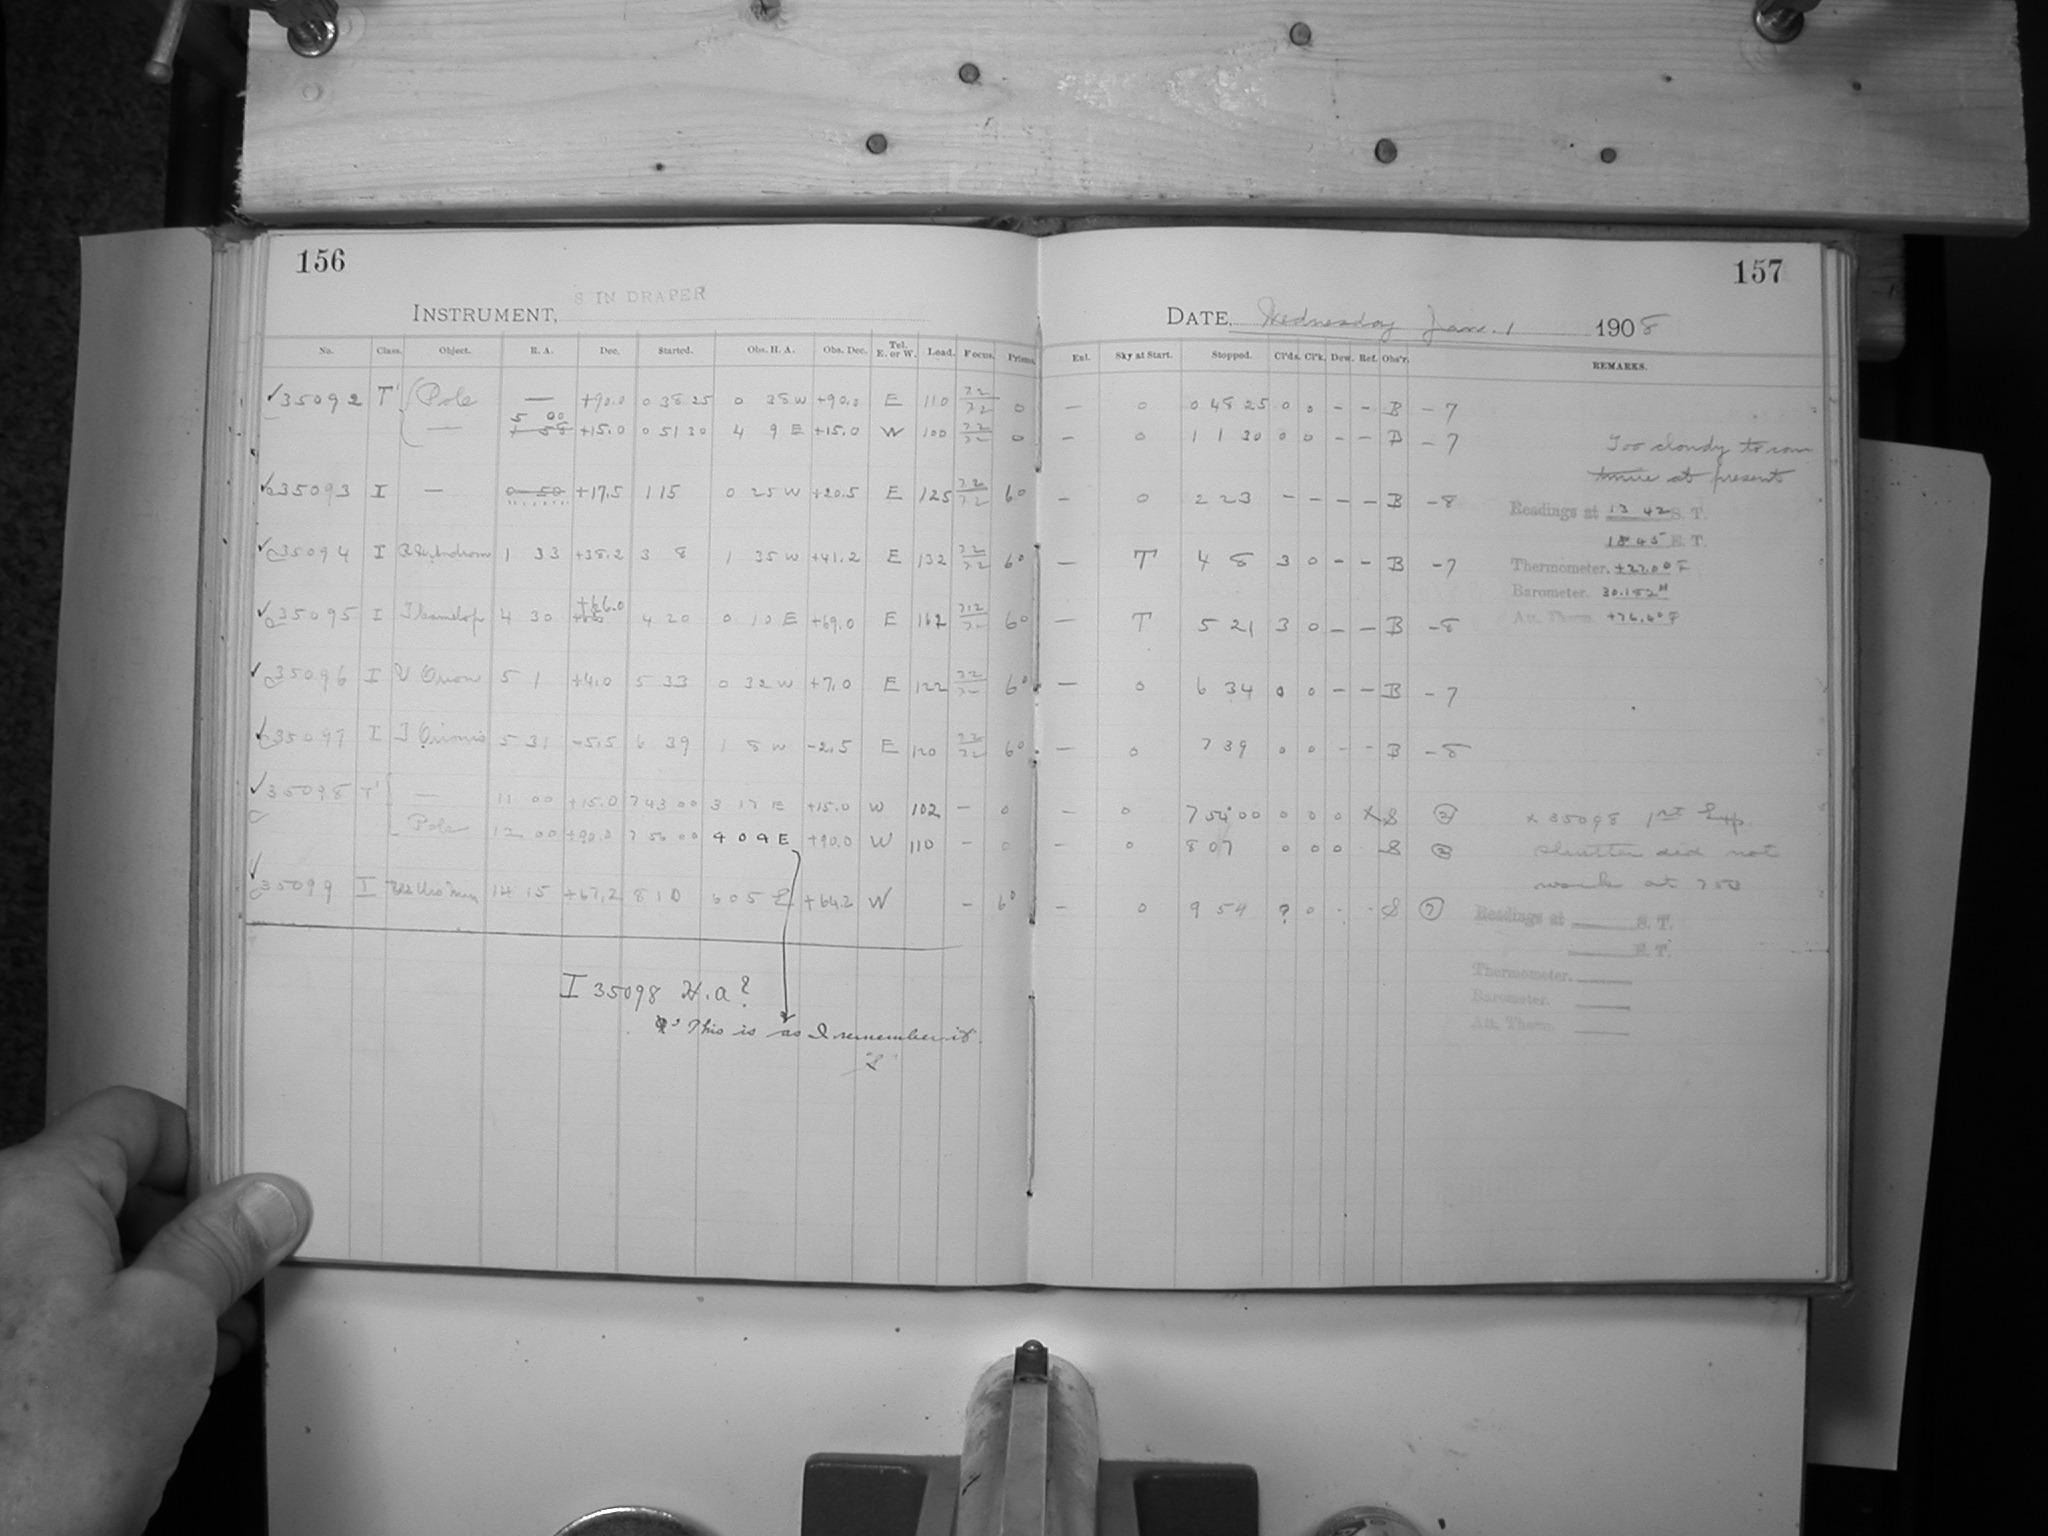 156
8 IN DRAPER
INSTRUMENT,
No. Class. Object. R. A. Dec. Started. Obs. H. A. Obs. Dec. Tel. E. or W. Load. Focus. Prisms.
35092 T' Pole — +90.0 0 38 25 0 38 W +90.0 E 110 0
— 5 00 +15.0 0 51 30 4 9 E +15.0 W 100 0
35093 I — 0 50 +17.5 1 15 0 25 W +20.5 E 125 6°
35094 I 1 33 +38.2 3 8 1 35 W +41.2 E 132 6°
35095 I T Camelop 4 30 +66.0 4 20 0 10 E +69.0 E 162 6°
35096 I V Orion 5 1 +4.0 5 33 0 32 W +7.0 E 122 6°
35097 I T Orionis 5 31 -5.5 6 39 1 8 W -2.5 E 120 6°
35098 T' — 11 00 +15.0 7 43 00 3 17 E +15.0 W 102 — 0
Pole 12 00 +90.0 7 56 00 4 04 E +90.0 W 110 — 0
35099 I 14 15 +67.2 8 10 6 05 E +64.2 W — 6°
I 35098 H.a?
This is as I remember it.
"S"
157
DATE, Wednesday Jan. 1 1908
Ent. Sky at Start. Stopped. Cl'ds. Cl'k. Dew. Ref. Obs'r. REMARKS.
— 0 0 48 25 0 0 — — B — 7
— 0 1 1 30 0 0 — — B — 7
Too cloudy to con
tinue at present
— 0 2 23 — — — — B -8
Readings at 13 42 S. T.
18 45 E. T.
— T 4 8 3 0 — — B -7
Thermometer. +22.0° F
Barometer. 30.182"
— T 5 21 3 0 — — B -8
Att. Therm. +76.4° F
— 0 6 34 0 0 — — B - 7
— 0 7 39 0 0 - - B - 8
— 0 7 54 00 0 0 0 X S 2
x 35098 1st Exp.
— 0 8 07 0 0 0 S 2
shutter did not
work at 753
— 0 9 54 ? 0 - - S 7
Readings at S. T.
E. T.
Thermometer.
Barometer.
Att. Therm.